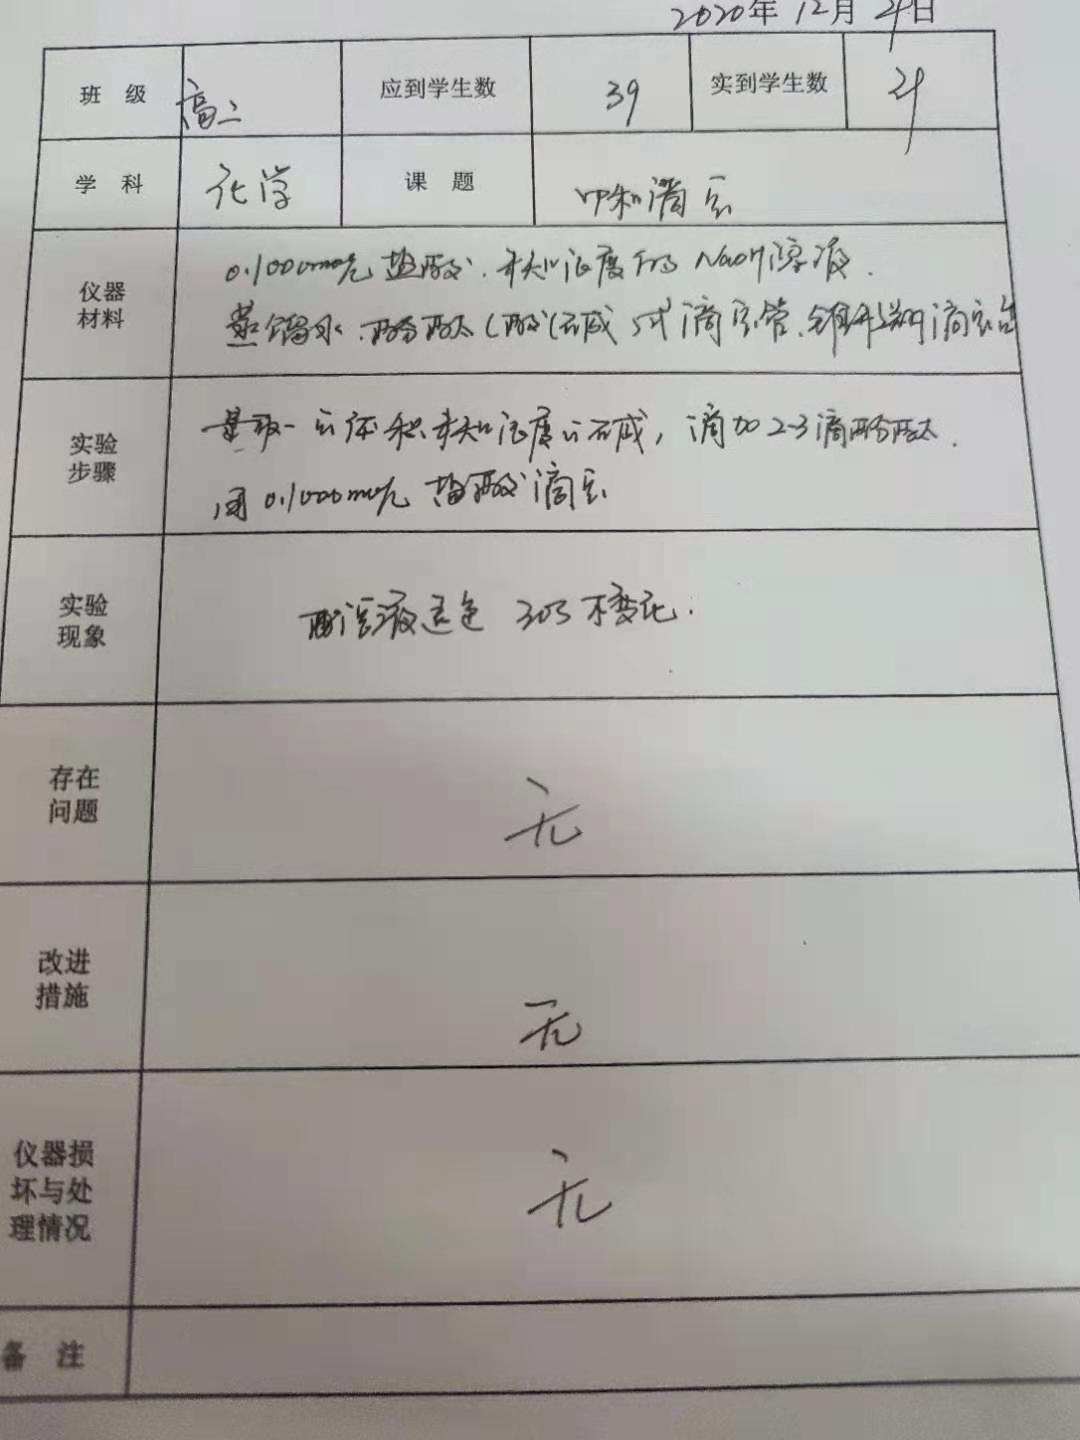 2020年 12月 21日
班 级 高二 应到学生数 39 实到学生数
学 科 化学 课 题 中和滴定
仪器材料
0.1000mol/L 盐酸.未知浓度的NaOH溶液.
蒸馏水.酚酞(酸(碱)式滴定管.锥形瓶滴定台
实验步骤
量取一定体积未知浓度碱,滴加2-3滴酚酞.
用0.1000mol/L 盐酸滴定
实验现象
溶液褪色 30S不变化.
存在问题
无
改进措施
无
仪器损坏与处理情况
无
备 注